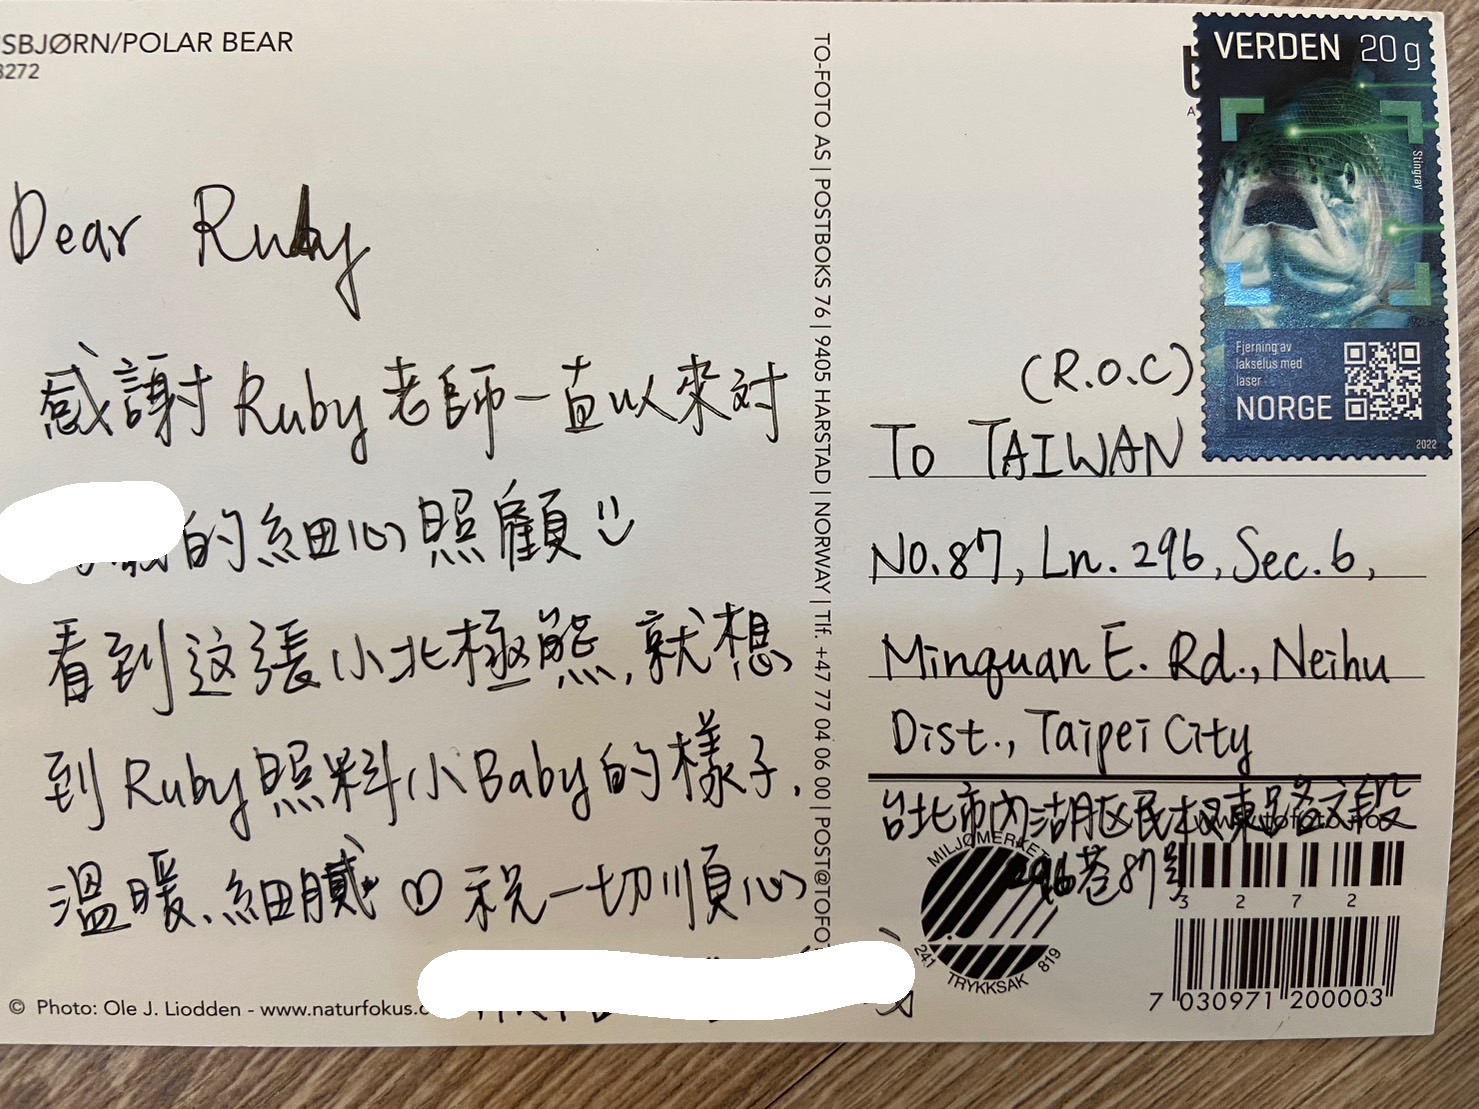 SBJØRN/POLAR BEAR
3272
Dear Ruby
感謝 Ruby 老師一直以來对
的細心照顧
看到这張小北極熊,就想
到 Ruby 照料小 Baby 的樣子,
溫暖、細膩 ♡ 祝一切順心
© Photo: Ole J. Liodden - www.naturfokus.c
TO-FOTO AS | POSTBOKS 76 | 9405 HARSTAD | NORWAY | Tlf. +47 77 04 06 00 | POST@TOFOT
VERDEN 20 g
Stingray
Fjerning av
lakselus med
laser
NORGE
2022
(R.O.C)
To TAIWAN
No.87, Ln. 296, Sec. 6,
Minquan E. Rd., Neihu
Dist., Taipei City
台北市內湖区民权東路六段
296巷87号
MILJØMERKET
241 TRYKKSAK 819
3 2 7 2
7 030971 200003